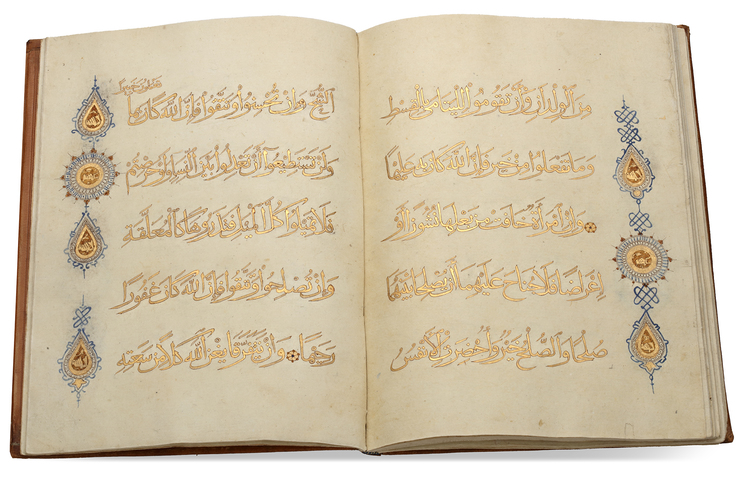 مِنَ الْوِلْدَانِ وَأَنْ تَقُومُوا لِلْيَتَامَى بِالْقِسْطِ
وَمَا تَفْعَلُوا مِنْ خَيْرٍ فَإِنَّ اللَّهَ كَانَ بِهِ عَلِيمًا
وَإِنِ امْرَأَةٌ خَافَتْ مِنْ بَعْلِهَا نُشُوزًا أَوْ
إِعْرَاضًا فَلَا جُنَاحَ عَلَيْهِمَا أَنْ يُصْلِحَا بَيْنَهُمَا
صُلْحًا وَالصُّلْحُ خَيْرٌ وَأُحْضِرَتِ الْأَنْفُسُ
الشُّحَّ وَإِنْ تُحْسِنُوا وَتَتَّقُوا فَإِنَّ اللَّهَ كَانَ بِمَا
تعملون خبيرا
وَلَنْ تَسْتَطِيعُوا أَنْ تَعْدِلُوا بَيْنَ النِّسَاءِ وَلَوْ حَرَصْتُمْ
فَلَا تَمِيلُوا كُلَّ الْمَيْلِ فَتَذَرُوهَا كَالْمُعَلَّقَةِ
وَإِنْ تُصْلِحُوا وَتَتَّقُوا فَإِنَّ اللَّهَ كَانَ غَفُورًا
رَحِيمًا وَإِنْ يَتَفَرَّقَا يُغْنِ اللَّهُ كُلًّا مِنْ سَعَتِهِ